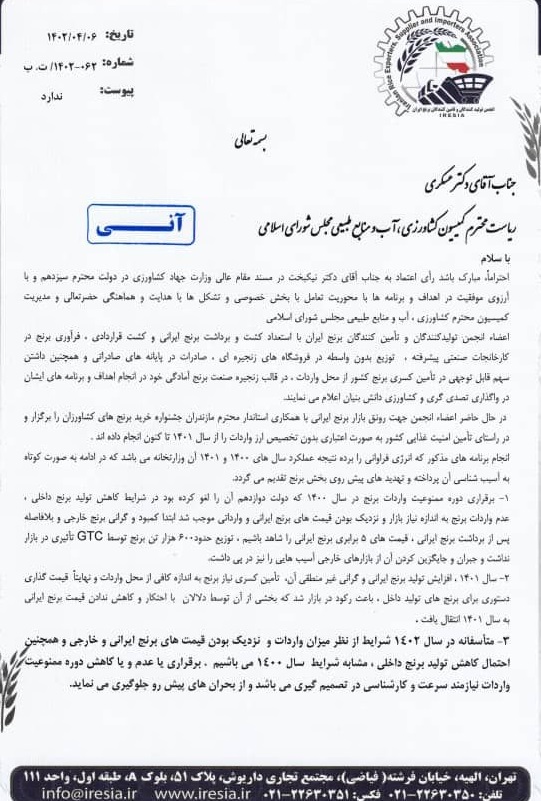 تاریخ: ۱۴۰۲/۰۴/۰۶
شماره: ۱۴۰۲-۰۶۲/ ت. ب
پیوست: ندارد
Iranian Rice Exporters, Supplier and Importers Association
انجمن تولید کنندگان و تامین کنندگان برنج ایران
IRESIA
بسمه تعالی
جناب آقای دکتر عسکری
ریاست محترم کمیسیون کشاورزی، آب و منابع طبیعی مجلس شورای اسلامی
آنــی
با سلام
احتراماً، مبارک باشد رأی اعتماد به جناب آقای دکتر نیکبخت در مسند مقام عالی وزارت جهاد کشاورزی در دولت محترم سیزدهم و با
آرزوی موفقیت در اهداف و برنامه ها با محوریت تعامل با بخش خصوصی و تشکل ها با هدایت و هماهنگی حضرتعالی و مدیریت
کمیسیون محترم کشاورزی ، آب و منابع طبیعی مجلس شورای اسلامی
اعضاء انجمن تولیدکنندگان و تأمین کنندگان برنج ایران با استعداد کشت و برداشت برنج ایرانی و کشت قراردادی ، فرآوری برنج در
کارخانجات صنعتی پیشرفته ، توزیع بدون واسطه در فروشگاه های زنجیره ای ، صادرات در پایانه های صادراتی و همچنین داشتن
سهم قابل توجهی در تأمین کسری برنج کشور از محل واردات ، در قالب زنجیره صنعت برنج آمادگی خود در انجام اهداف و برنامه های ایشان
در واگذاری تصدی گری و کشاورزی دانش بنیان اعلام می نمایند.
در حال حاضر اعضاء انجمن جهت رونق بازار برنج ایرانی با همکاری استاندار محترم مازندران جشنواره خرید برنج های کشاورزان را برگزار و
در راستای تأمین امنیت غذایی کشور به صورت اعتباری بدون تخصیص ارز واردات را از سال ۱۴۰۱ تا کنون انجام داده اند .
انجام برنامه های مذکور که انرژی فراوانی را برده نتیجه عملکرد سال های ۱۴۰۰ و ۱۴۰۱ آن وزارتخانه می باشد که در ادامه به صورت کوتاه
به آسیب شناسی آن پرداخته و تهدید های پیش روی بخش برنج تقدیم می گردد.
۱- برقراری دوره ممنوعیت واردات برنج در سال ۱۴۰۰ که دولت دوازدهم آن را لغو کرده بود در شرایط کاهش تولید برنج داخلی ،
عدم واردات برنج به اندازه نیاز بازار و نزدیک بودن قیمت های برنج ایرانی و وارداتی موجب شد ابتدا کمبود و گرانی برنج خارجی و بلافاصله
پس از برداشت برنج ایرانی ، قیمت های ۵ برابری برنج ایرانی را شاهد باشیم ، توزیع حدود۶۰۰ هزار تن برنج توسط GTC تأثیری در بازار
نداشت و جبران و جایگزین کردن آن از بازارهای خارجی آسیب هایی را نیز در پی داشت.
۲- سال ۱۴۰۱ ، افزایش تولید برنج ایرانی و گرانی غیر منطقی آن، تأمین کسری نیاز برنج به اندازه کافی از محل واردات و نهایتاً قیمت گذاری
دستوری برای برنج های تولید داخل ، باعث رکود در بازار شد که بخشی از آن توسط دلالان با احتکار و کاهش ندادن قیمت برنج ایرانی
به سال ۱۴۰۱ انتقال یافت .
۳- متأسفانه در سال ۱۴۰۲ شرایط از نظر میزان واردات و نزدیک بودن قیمت های برنج ایرانی و خارجی و همچنین
احتمال کاهش تولید برنج داخلی ، مشابه شرایط سال ۱۴۰۰ می باشیم . برقراری یا عدم و یا کاهش دوره ممنوعیت
واردات نیازمند سرعت و کارشناسی در تصمیم گیری می باشد و از بحران های پیش رو جلوگیری می نماید.
تهران، الهیه، خیابان فرشته( فیاضی)، مجتمع تجاری داریوش، پلاک ۵۱، بلوک A، طبقه اول، واحد ۱۱۱
تلفن: ۲۲۶۳۰۳۵۰-۰۲۱ فکس: ۲۲۶۳۰۳۵۱-۰۲۱ www.iresia.ir info@iresia.ir